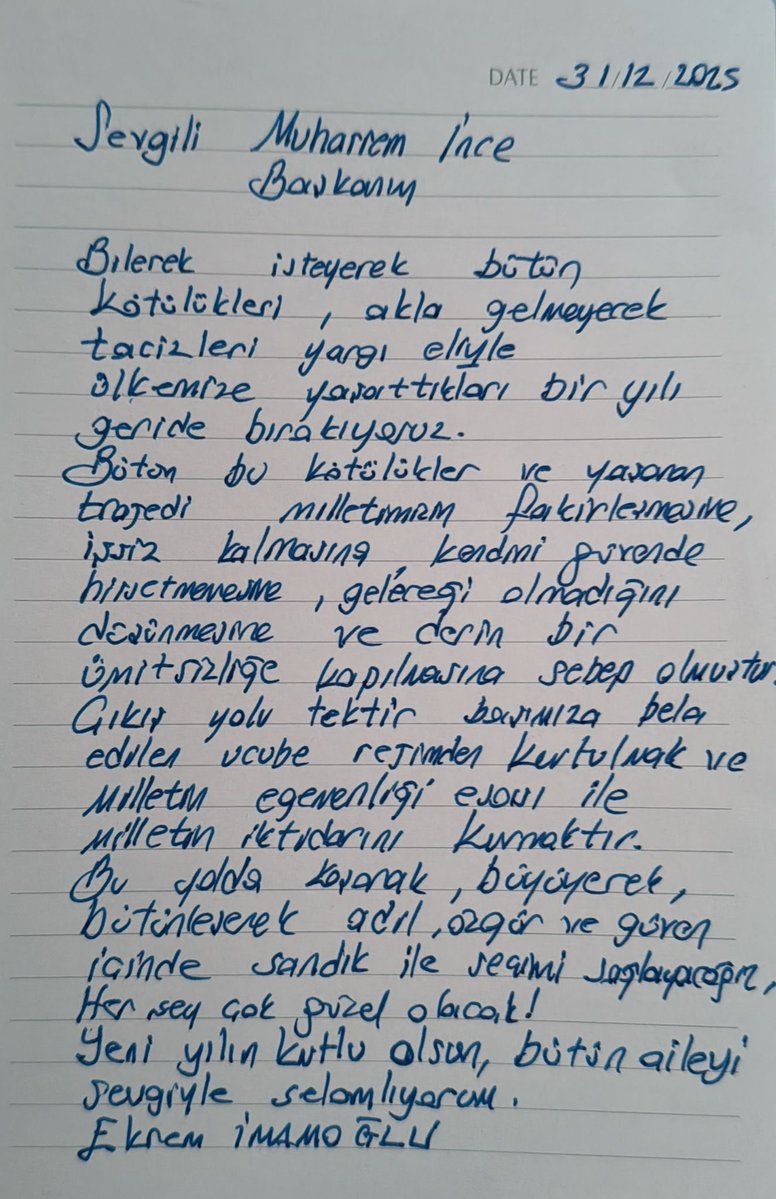 DATE 31/12/2025
Sevgili Muharrem İnce
Başkanım
Bilerek isteyerek bütün
kötülükleri, akla gelmeyerek
tacizleri yargı eliyle
ülkemize yaşarttıkları bir yılı
geride bırakıyoruz.
Bütün bu kötülükler ve yaşanan
trajedi milletimizin fakirleşmesine,
işsiz kalmasına, kendini güvende
hissetmemesine, geleceği olmadığını
düşünmesine ve derin bir
ümitsizliğe kapılmasına sebep olmuştur.
Çıkış yolu tektir başımıza bela
edilen ucube rejimden kurtulmak ve
milletin egemenliği esası ile
milletin iktidarını kurmaktır.
Bu yolda koşarak, büyüyerek,
bütünleşerek adil, özgür ve güven
içinde sandık ile seçimi sağlayacağız,
Her şey çok güzel olacak!
Yeni yılın kutlu olsun, bütün aileyi
sevgiyle selamlıyorum.
Ekrem İMAMOĞLU